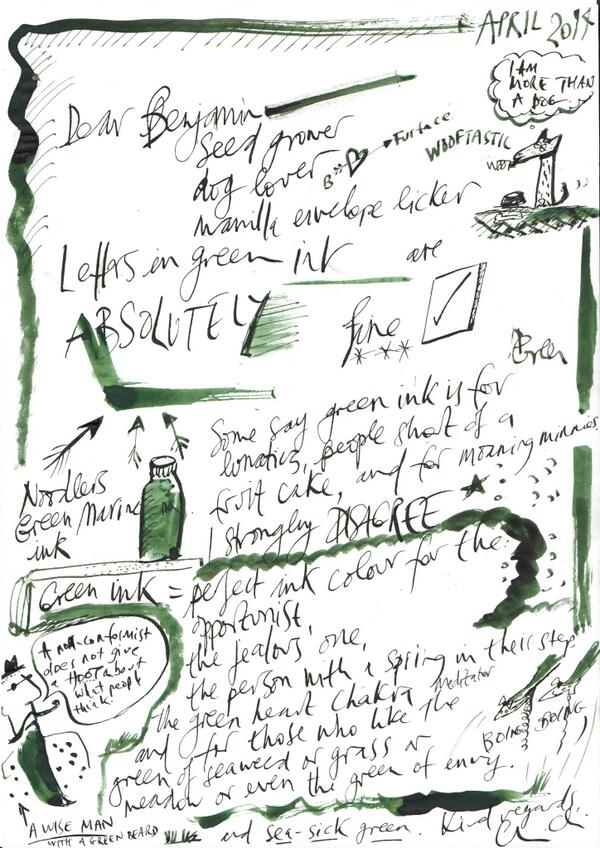 APRIL 2014
I AM
MORE THAN
A DOG
Dear Benjamin
Seed grower
dog lover
B
Furface
WOOFTASTIC
WOOF
manilla envelope licker
Letters in green ink are
ABSOLUTELY
fine
Green
Some say green ink is for
lunatics, people short of a
fruit cake, and for moaning minnies
I strongly DISAGREE
Noodlers
Green Marine
ink
INK
Green ink = perfect ink colour for the
opportunist,
the jealous one,
the person with a spring in their step
the green heart chakra meditator
and for those who like the
green of seaweed or grass or
meadow or even the green of envy.
A non-conformist
does not give
a HOOT about
what people
think!
BOING BOING
A WISE MAN
WITH A GREEN BEARD
and sea-sick green. Kind regards,